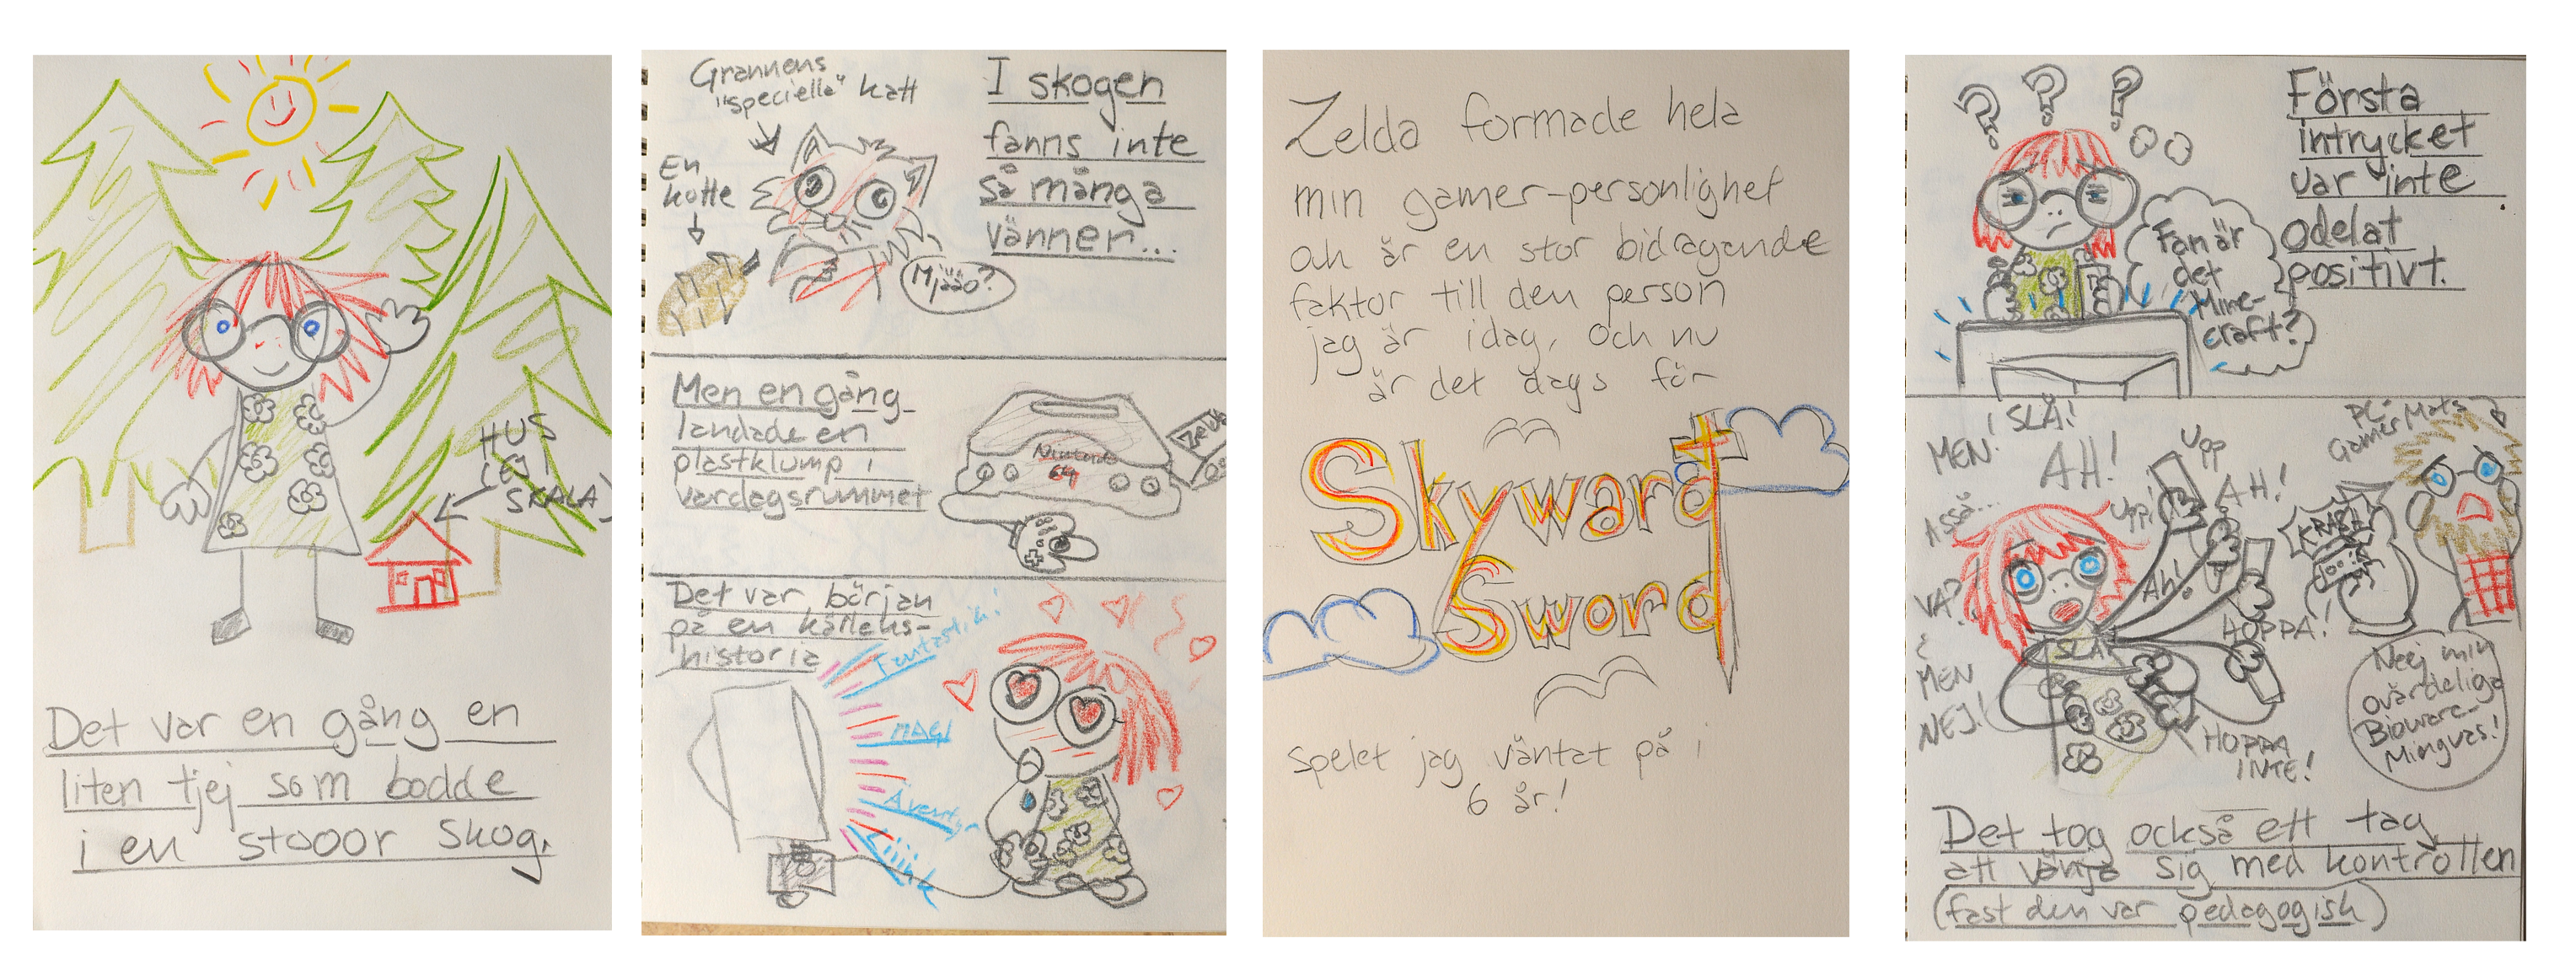 HUS
(EJ I
SKALA)
Det var en gång en
liten tjej som bodde
i en stooor skog.
Grannens
"speciella" katt
En
kotte
Mjääo?
I skogen
fanns inte
så många
vänner...
Men en gång
landade en
plastklump i
vardagsrummet
Nintendo
64
Zelda
Det var början
på en kärleks-
historia
Fantastisk!
MAGI
Äventyr
Liiink
Zelda formade hela
min gamer-personlighet
och är en stor bidragande
faktor till den person
jag är idag, och nu
är det dags för
Skyward
Sword
spelet jag väntat på i
6 år!
? ? ?
Första
intrycket
var inte
odelat
positivt.
Fan är
det
Mine-
craft?
MEN!
SLÅ!
AH!
Asså...
VA?
MEN
NEJ!
Upp
Upp!
AH!
Ah!
SLÅ
HOPPA!
HOPPA
INTE!
KRASH
PC-
Gamer Mats
Neej min
ovärdeliga
Bioware-
Mingvas!
Det tog också ett tag
att vänja sig med kontrollen
(fast den var pedagogisk)